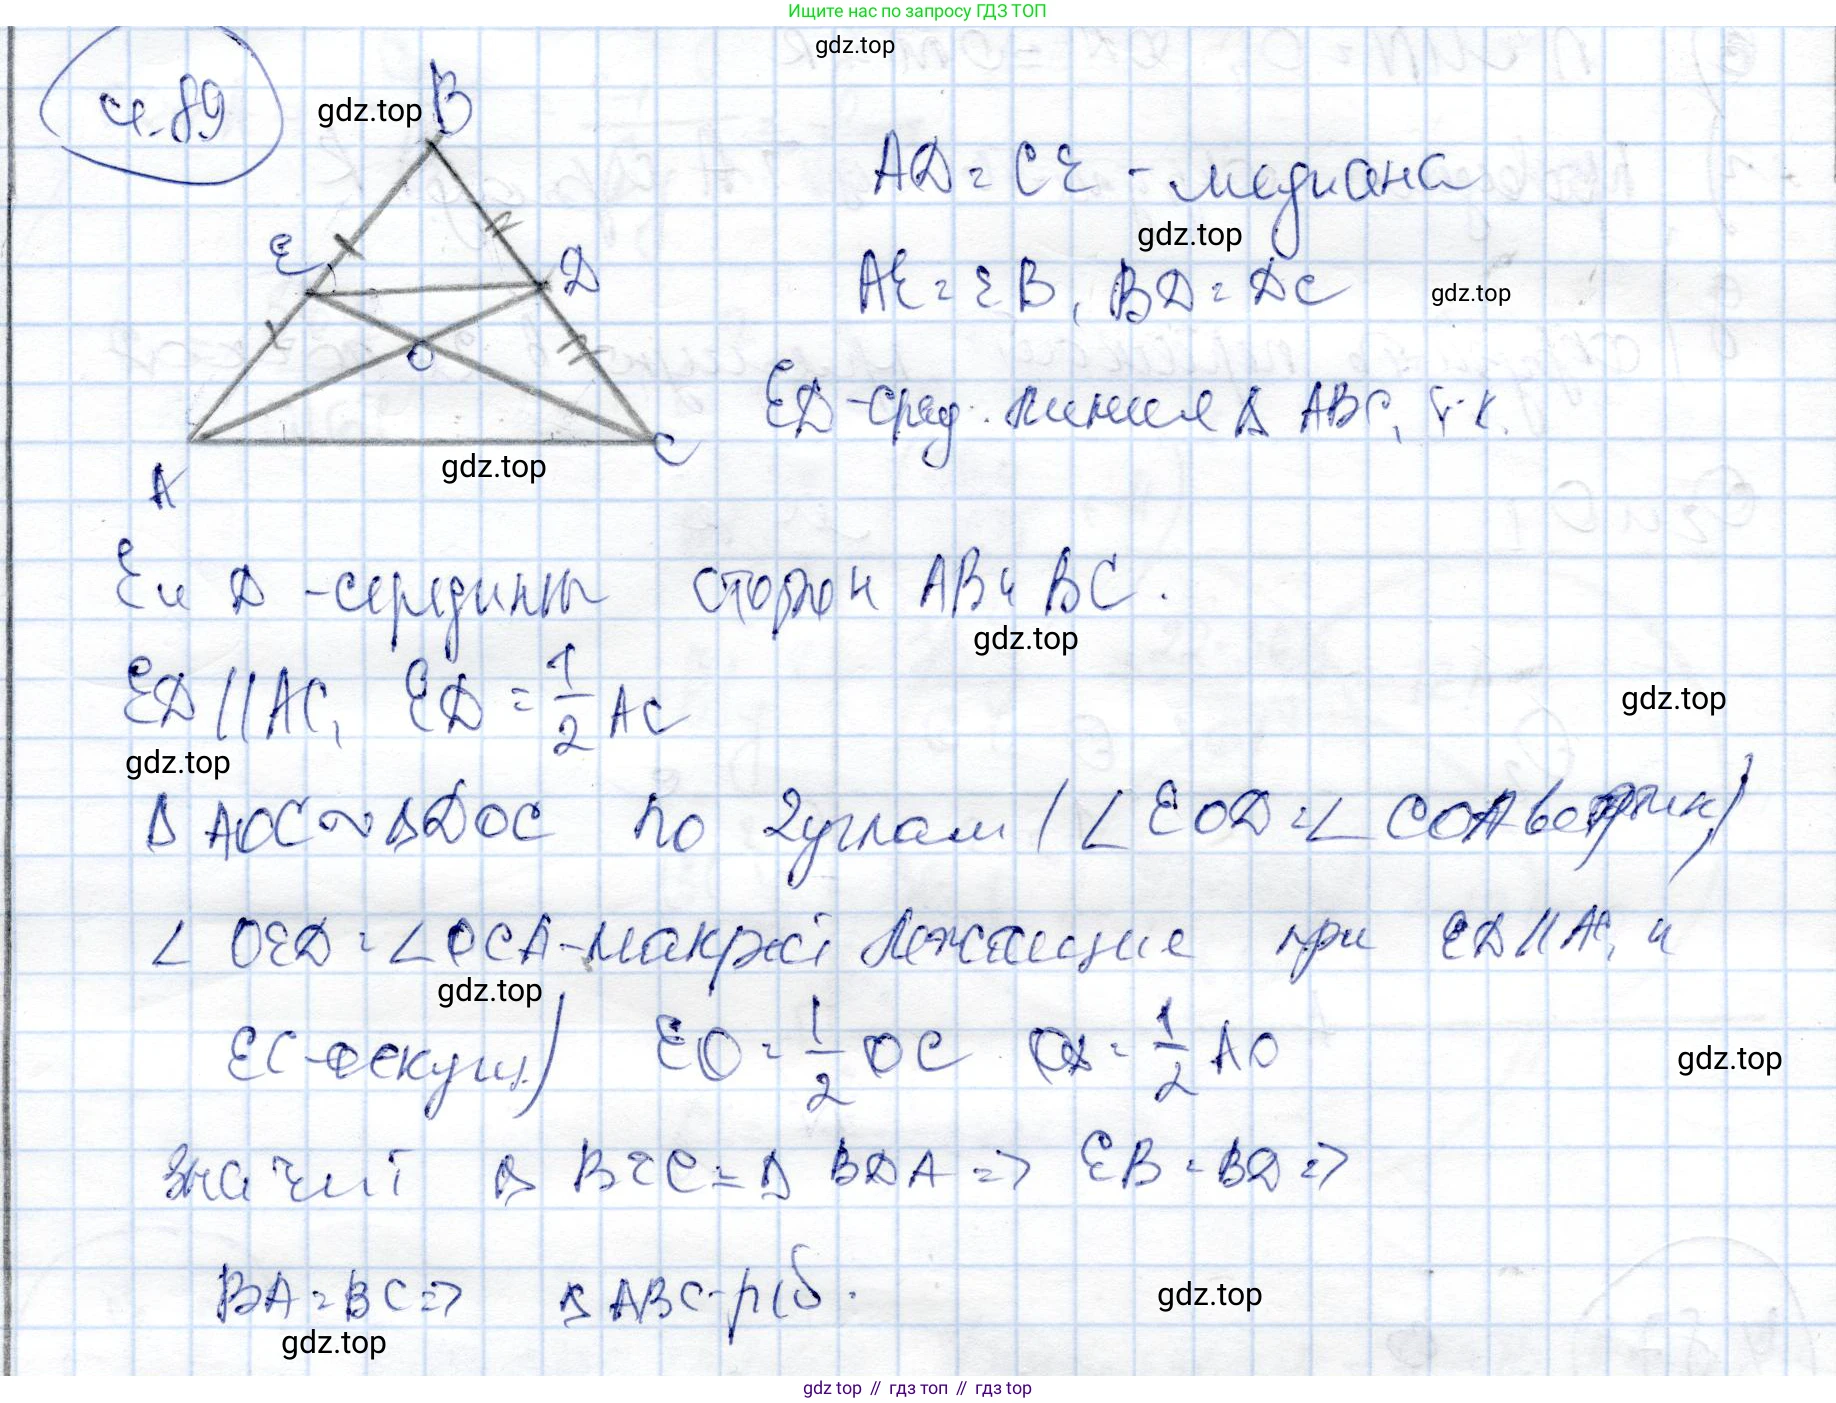 Ищите нас по запросу ГДЗ ТОП
gdz.top
ч.89
gdz.top
B
AD = CE - медиана
gdz.top
E
D
AE = EB, BD = DC
gdz.top
O
ED - сред. линия Δ ABC, т.к.
A
C
gdz.top
E и D - середины сторон AB и BC.
gdz.top
ED || AC, ED = 1/2 AC
gdz.top
gdz.top
Δ AOC ~ Δ DOC по 2 углам (∠ EOD = ∠ COA вертик)
∠ OED = ∠ OCA - накрест лежащие при ED || AC, и
gdz.top
EC - секущ.) EO = 1/2 OC OD = 1/2 AO
gdz.top
Значит Δ BEC = Δ BDA => EB = BD =>
BA = BC => Δ ABC - р/б.
gdz.top
gdz.top
gdz top // гдз топ // gdz top